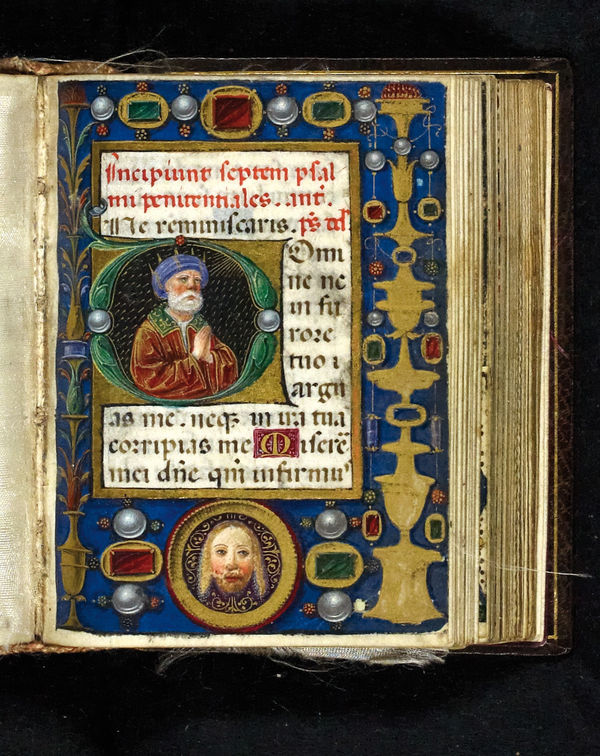 Incipiunt septem psal
mi penitentiales. ant.
Ne reminiscaris. ps dd.
Domi
ne ne
in fu
rore
tuo i
argu
as me. neqꝫ in ira tua
corripias me Miserē
mei dn̄e qm̄ infirmu'